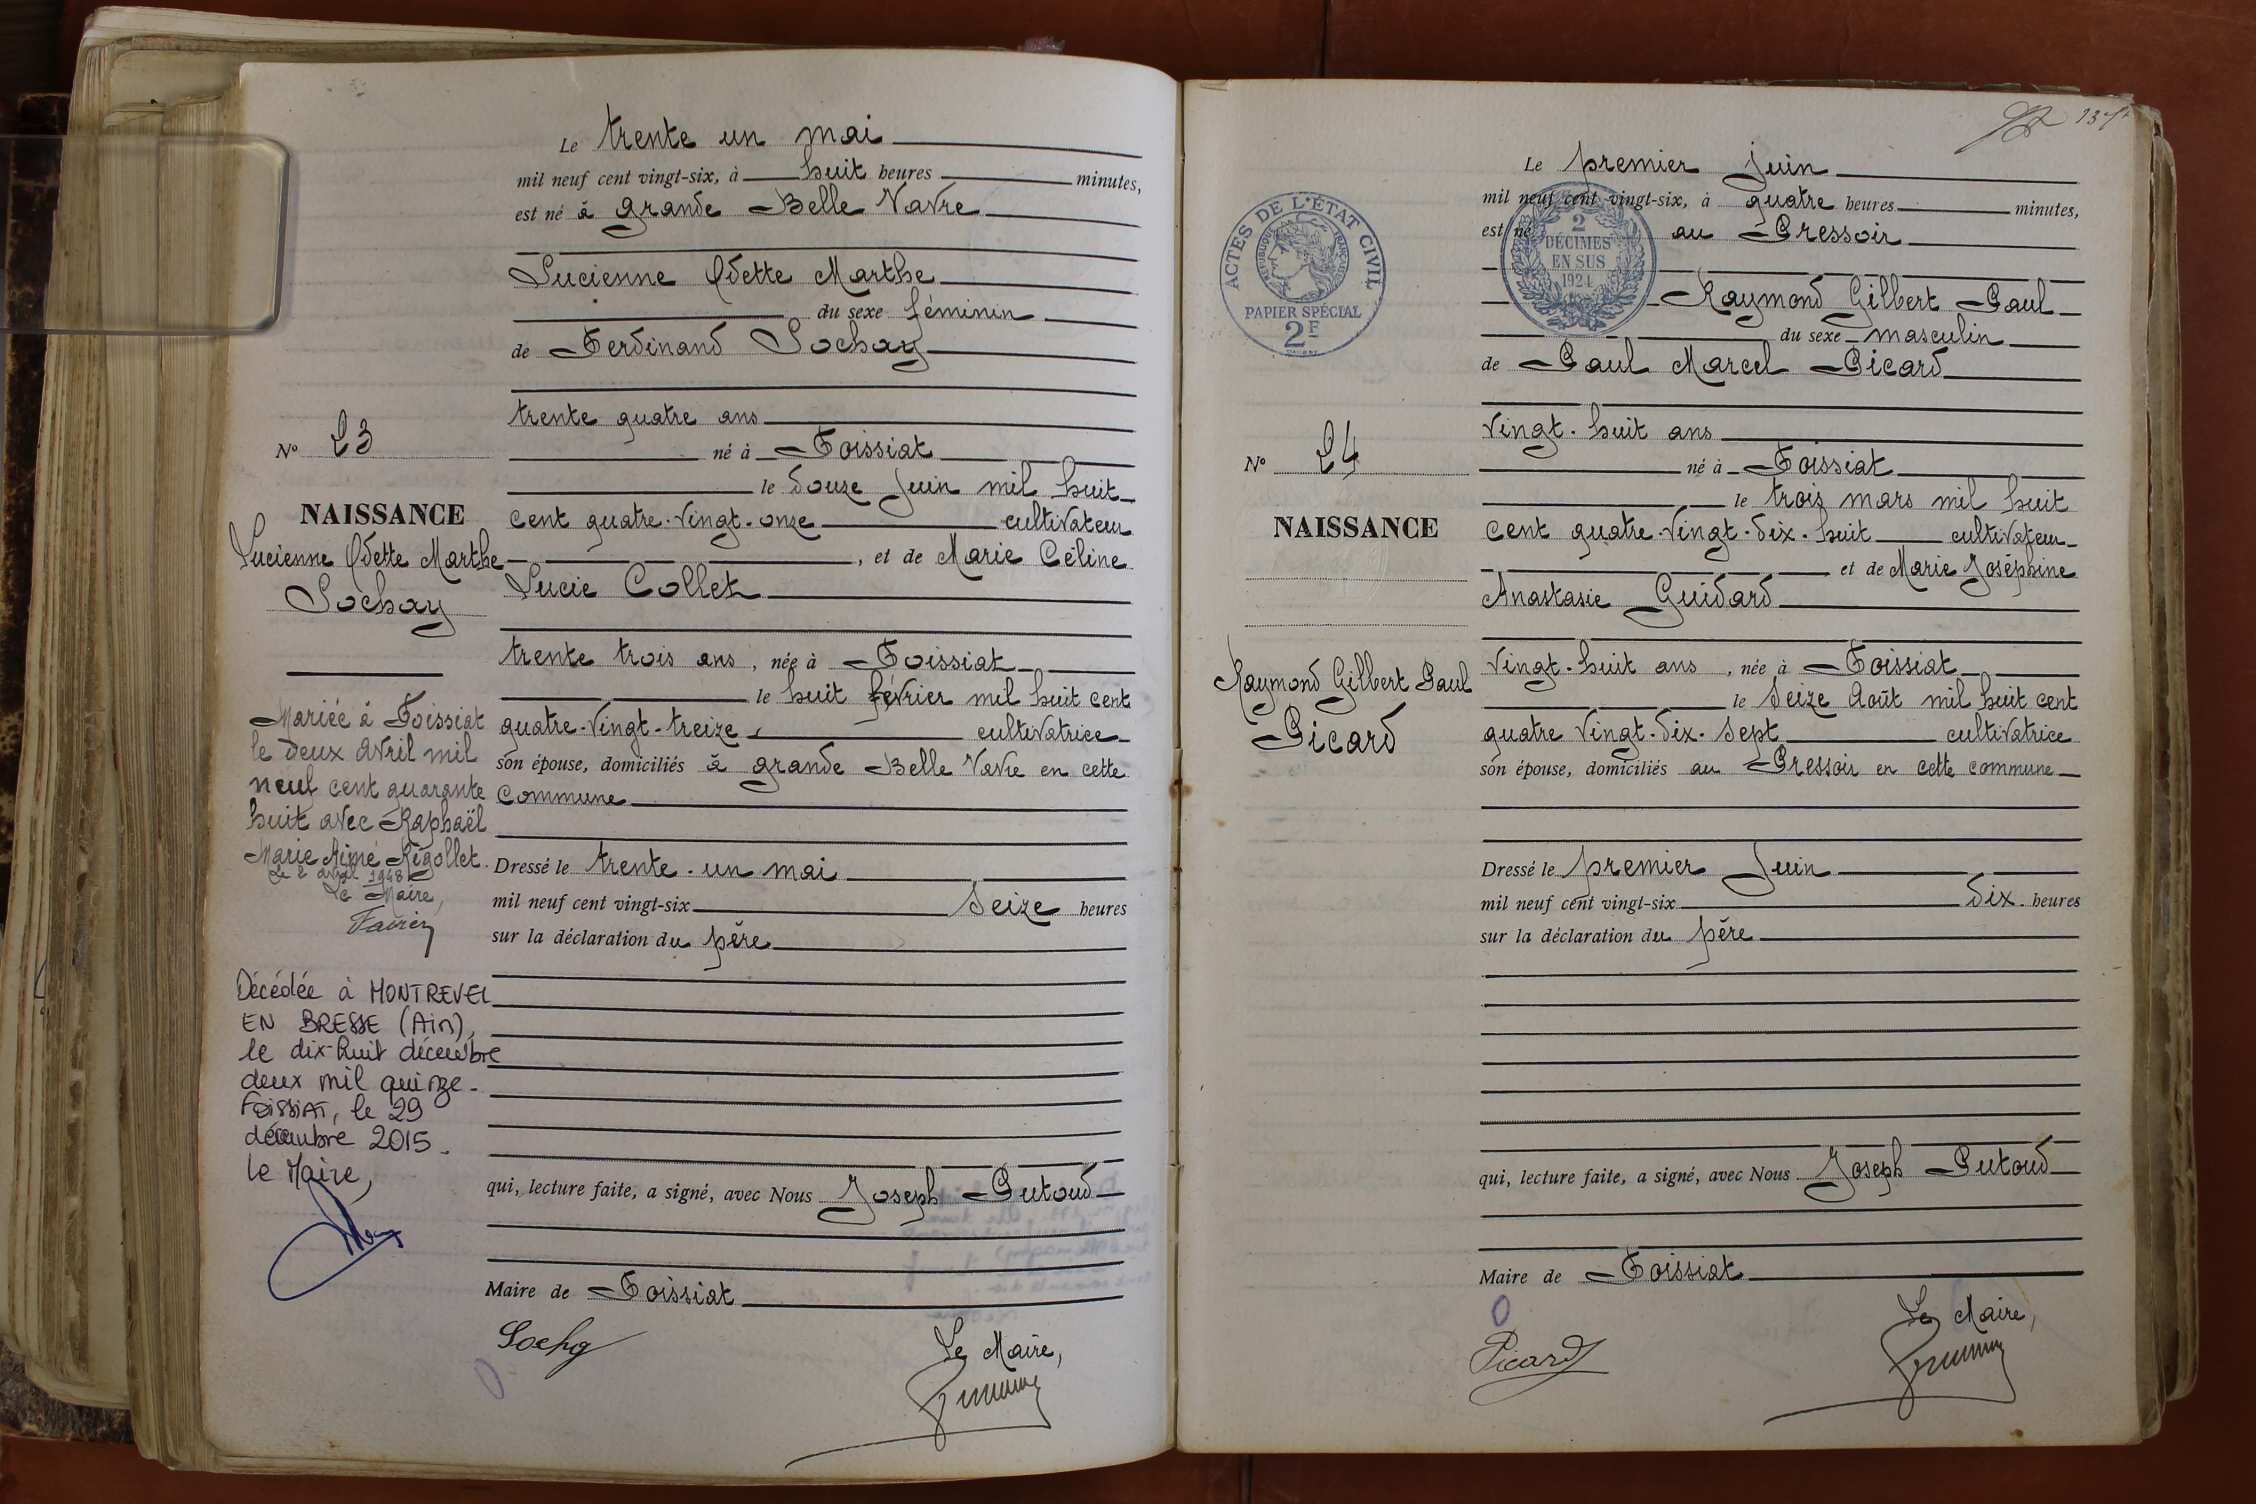 Le trente un mai
mil neuf cent vingt-six, à huit heures minutes,
est né à grande Belle Vavre
Lucienne Odette Marthe
du sexe féminin
de Ferdinand Sochay
trente quatre ans
né à Foissiat
le douze juin mil huit
cent quatre-vingt-onze cultivateur
, et de Marie Céline
Lucie Collet
trente trois ans, née à Foissiat
le huit février mil huit cent
quatre-vingt-treize, cultivatrice
son épouse, domiciliés à grande Belle Vavre en cette
commune
Dressé le trente-un mai
mil neuf cent vingt-six seize heures
sur la déclaration du père
qui, lecture faite, a signé, avec Nous Joseph Putoud
Maire de Foissiat
Le Maire,
N° 23
NAISSANCE
Lucienne Odette Marthe
Sochay
Mariée à Foissiat
le deux avril mil
neuf cent quarante
huit avec Raphaël
Marie Aimé Rigollet.
Le 2 avril 1948
Le Maire,
Décédée à MONTREVEL
EN BRESSE (Ain),
le dix-huit décembre
deux mil quinze.
FOISSIAT, le 29
décembre 2015.
Le Maire,
Le premier juin
mil neuf cent vingt-six, à quatre heures minutes,
est né au Pressoir
Raymond Gilbert Paul
du sexe masculin
de Paul Marcel Picard
vingt-huit ans
né à Foissiat
le trois mars mil huit
cent quatre-vingt-dix-huit cultivateur
et de Marie Joséphine
Anastasie Guidard
vingt-huit ans, née à Foissiat
le seize Août mil huit cent
quatre vingt-dix-sept cultivatrice
son épouse, domiciliés au Pressoir en cette commune
Dressé le premier Juin
mil neuf cent vingt-six dix heures
sur la déclaration du père
qui, lecture faite, a signé, avec Nous Joseph Putoud
Maire de Foissiat
Le Maire,
Picard
N° 24
NAISSANCE
Raymond Gilbert Paul
Picard
ACTES DE L'ÉTAT CIVIL
RÉPUBLIQUE FRANÇAISE
PAPIER SPÉCIAL
2F
2
DÉCIMES
EN SUS
1924